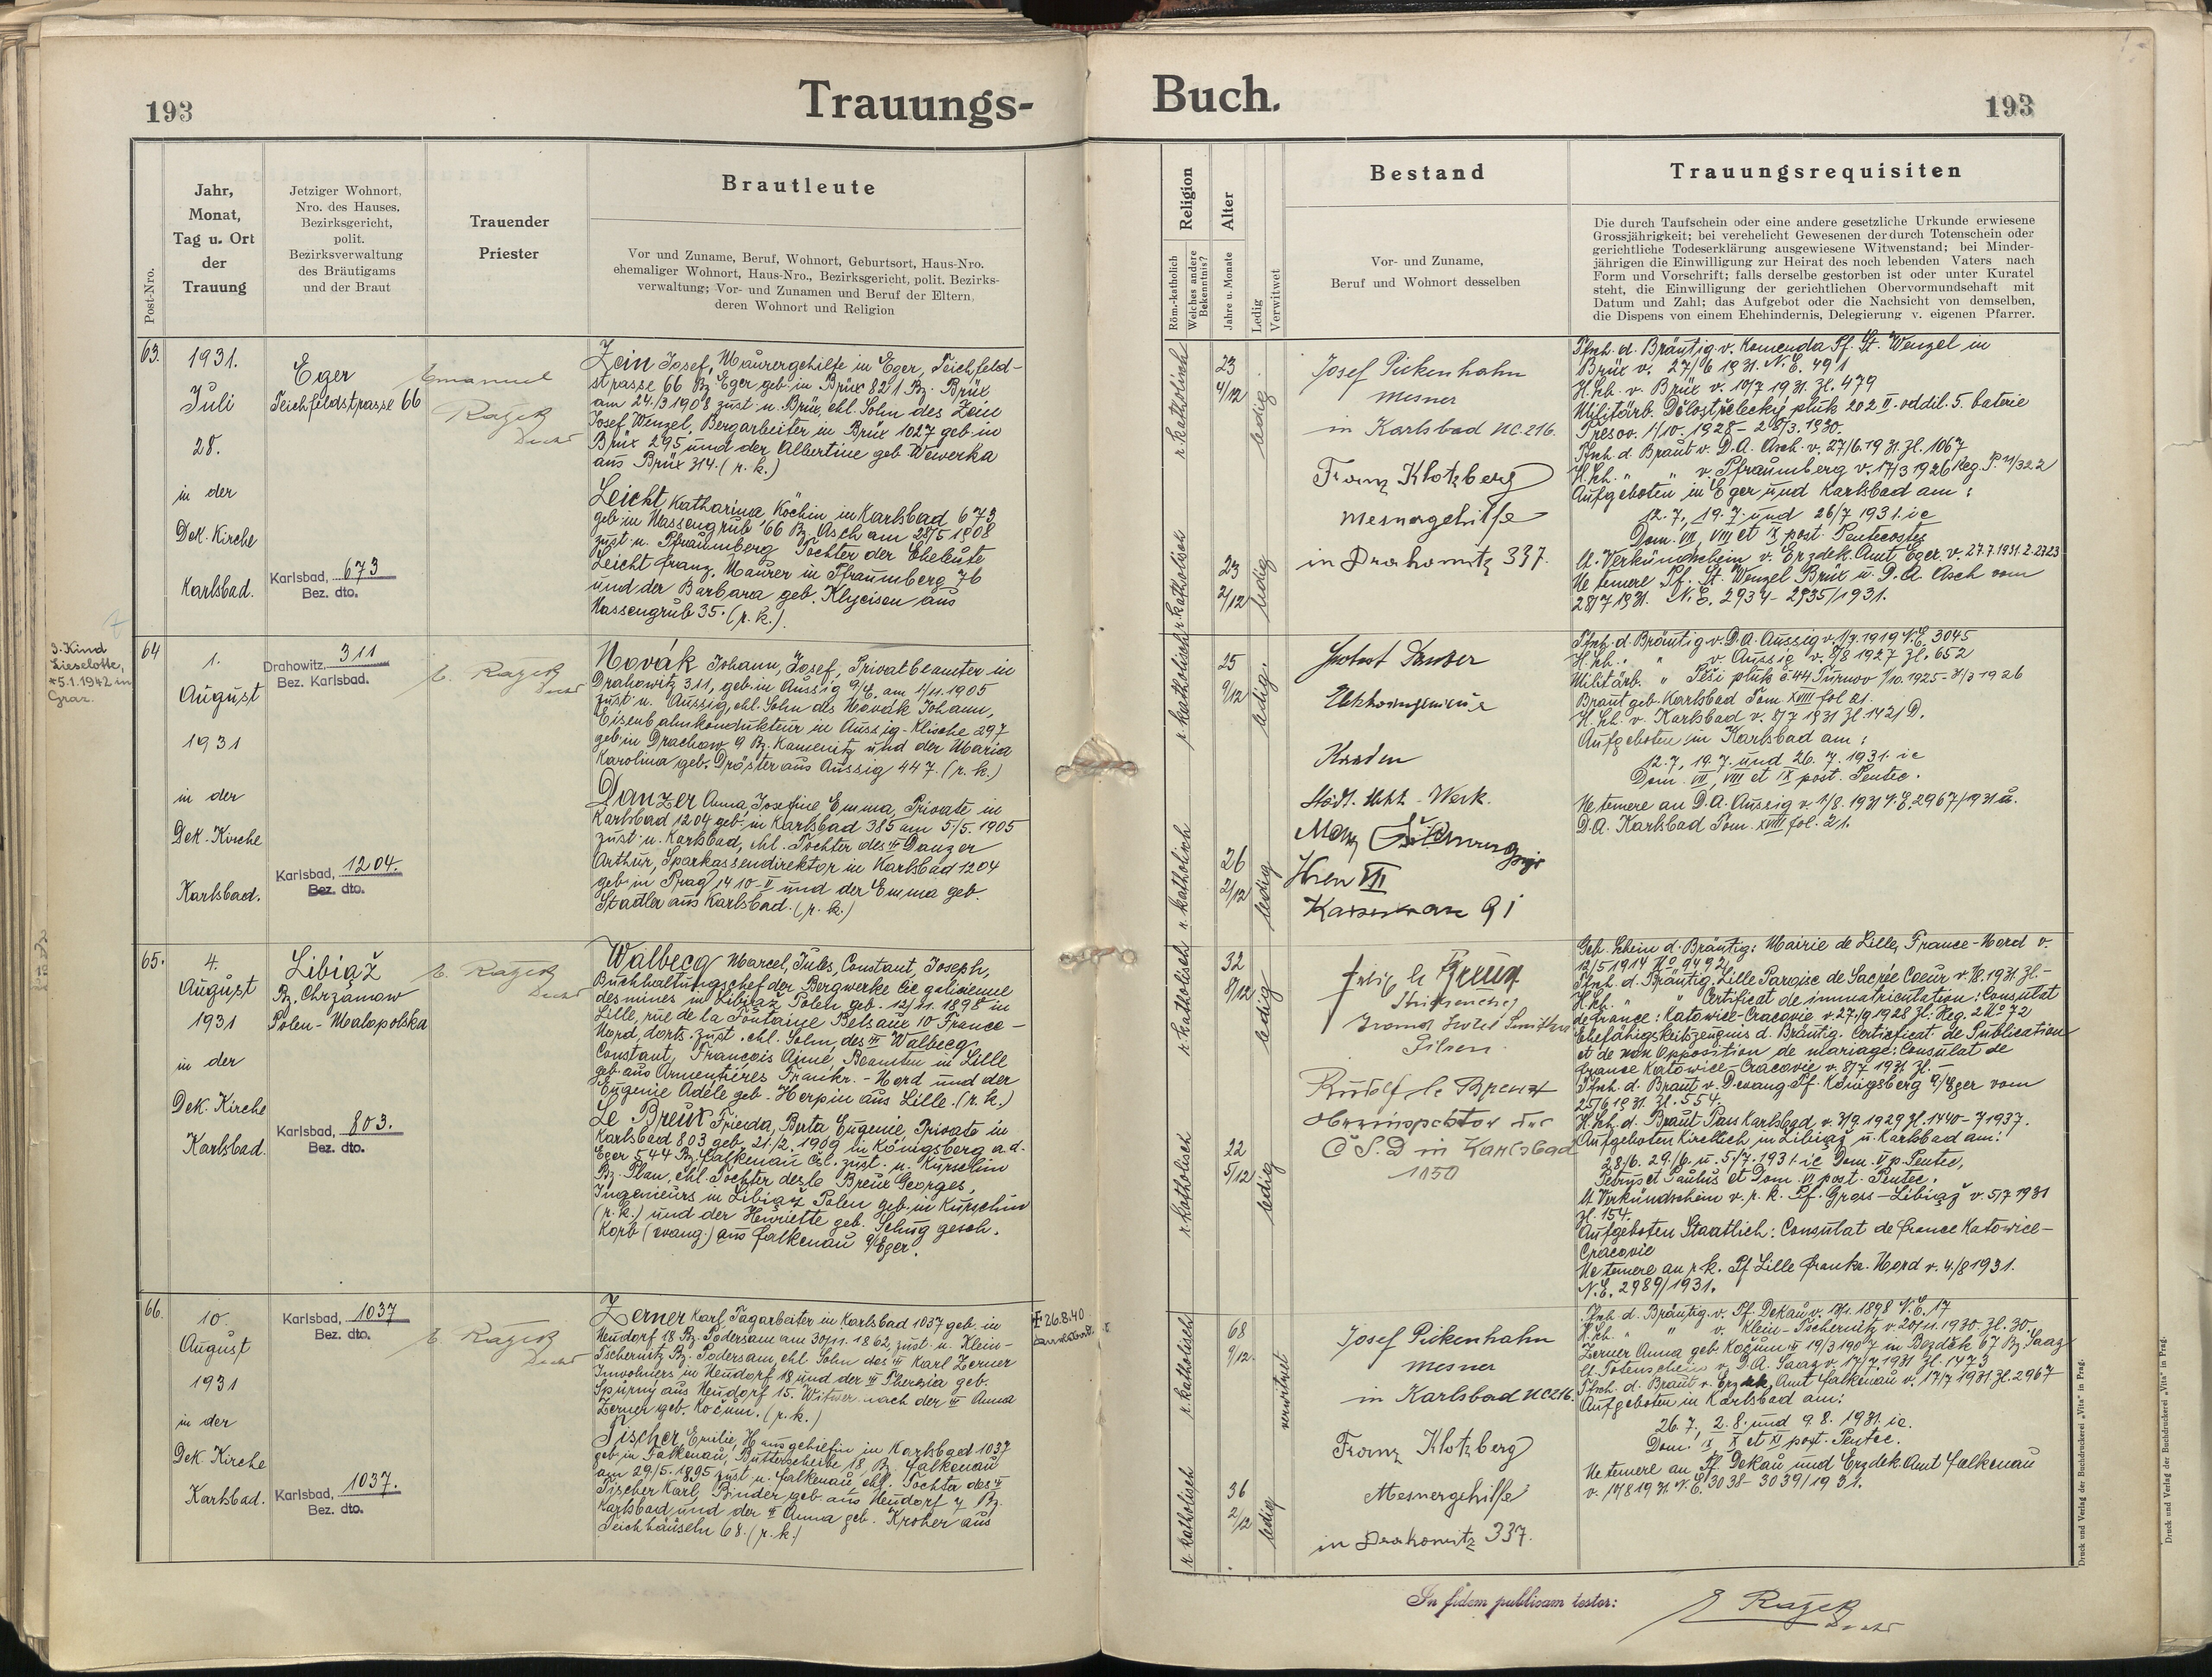 193
Trauungs-
Buch.
193
Post-Nro.
Jahr,
Monat,
Tag u. Ort
der
Trauung
Jetziger Wohnort,
Nro. des Hauses,
Bezirksgericht,
polit.
Bezirksverwaltung
des Bräutigams
und der Braut
Trauender
Priester
Brautleute
Vor und Zuname, Beruf, Wohnort, Geburtsort, Haus-Nro.
ehemaliger Wohnort, Haus-Nro., Bezirksgericht, polit. Bezirks-
verwaltung; Vor- und Zunamen und Beruf der Eltern,
deren Wohnort und Religion
Religion
Röm.-katholisch
Welches andere
Bekenntnis?
Alter
Jahre u. Monate
Ledig
Verwitwet
Bestand
Vor- und Zuname,
Beruf und Wohnort desselben
Trauungsrequisiten
Die durch Taufschein oder eine andere gesetzliche Urkunde erwiesene
Grossjährigkeit; bei verehelicht Gewesenen der durch Totenschein oder
gerichtliche Todeserklärung ausgewiesene Witwenstand; bei Minder-
jährigen die Einwilligung zur Heirat des noch lebenden Vaters nach
Form und Vorschrift; falls derselbe gestorben ist oder unter Kuratel
steht, die Einwilligung der gerichtlichen Obervormundschaft mit
Datum und Zahl; das Aufgebot oder die Nachsicht von demselben,
die Dispens von einem Ehehindernis, Delegierung v. eigenen Pfarrer.
63.
1931.
Juli
28.
in der
Dek. Kirche
Karlsbad.
Eger
Teichfeldstrasse 66
Karlsbad, 673
Bez. dto.
Emanuel
Ražek
Zein Josef, Maurergehilfe in Eger, Teichfeld-
strasse 66 Bz. Eger geb. in Brüx 821 Bz. Brüx
am 24./3 1908 zust. n. Brüx, ehl. Sohn des Zein
Josef Wenzel, Bergarbeiter in Brüx 1027 geb. in
Brüx 295 und der Albertine geb. Wewerka
aus Brüx 314. (r. k.)
Leicht Katharina Köchin in Karlsbad 673
geb. in Nassengrub 66 Bz. Asch am 28/5 1908
zust. n. Pfraumberg Tochter der Eheleute
Leicht Franz, Maurer in Pfraumberg 76
und der Barbara geb. Klyeisen aus
Nassengrub 35. (r. k.).
r. katholisch
23
4/12
ledig
r. katholisch
23
2/12
ledig
Josef Pickenhahn
Mesner
in Karlsbad NC. 216.
Franz Klotzberg
Mesnergehilfe
in Drahowitz 337.
Tfsch. d. Bräutig. v. Komenda Pf. St. Wenzel in
Brüx v. 27/6 1931. N.E. 491
H. sch. v. Brüx v. 10/7 1931. Zl. 479
Militärb. Dělostřelecký pluk 202 II. oddíl. 5. baterie
Presov. 1/10. 1928 - 28/3. 1930.
Tfsch. d. Braut v. D.A. Asch. v. 27/6. 1931. Zl. 1067
H. sch. " " v. Pfraumberg v. 17/3 1926 Reg. P. 4/322
Aufgeboten in Eger und Karlsbad am :
12. 7., 19. 7. und 26/7 1931. ie
Dom. VII, VIII et IX post. Pentecostes
lt. Verkündschein v. Erzdek. Amt Eger. v. 27.7.1931. Z. 2323
Ne temere Pf. St. Wenzel Brüx u. D. A. Asch vom
28/7 1931. N.E. 2934 - 2935/1931.
3. Kind
Lieselotte,
*5.1.1942 in
Graz.
64
1.
August
1931
in der
Dek. Kirche
Karlsbad.
Drahowitz, 311
Bez. Karlsbad.
Karlsbad, 1204.
Bez. dto.
E. Ražek
Novák Johann, Josef, Privatbeamter in
Drahowitz 311, geb. in Aussig 9/4, am 1/11. 1905
zust. n. Aussig, ehl. Sohn des Novák Johann,
Eisenbahnkondukteur in Aussig-Klische 297
geb. in Drachow 9 Bz. Kamenitz und der Maria
Karolina geb. Dröster aus Aussig 447. (r. k.)
Danzer Anna, Josefine Emma, Private in
Karlsbad 1204 geb. in Karlsbad 385 am 5/5. 1905
zust. n. Karlsbad, ehl. Tochter des Danzer
Arthur, Sparkassendirektor in Karlsbad 1204
geb. in Prag 1410-II und der Emma geb.
Stadler aus Karlsbad. (r. k.)
r. katholisch
25
9/12
ledig.
r. katholisch
26
2/12
ledig
Kaaden
Städt. Elekt. - Werk.
Wien VII
Tfsch. d. Bräutig. v. D.A. Aussig v. 1/7. 1919 N.E. 3045
H. sch. " " v. Aussig v. 8/8 1927 Zl. 652
Militärb. " Pěší pluk č. 44 Turnov 1/10. 1925 - 31/3 1926
Braut geb. Karlsbad Tom XVIII fol 21.
H. sch. v. Karlsbad v. 8/7 1931 Zl. 1421 D.
Aufgeboten in Karlsbad am :
12. 7, 19. 7. und 26. 7. 1931. ie
Dom. VII, VIII et IX post. Pentec.
Ne temere an D.A. Aussig v. 1/8. 1931 N.E. 2967/1931 u.
D.A. Karlsbad Tom. XVIII fol. 21.
65.
4.
August
1931
in der
Dek. Kirche
Karlsbad.
Libiąž
Bz. Chrzánow
Polen - Malopolska
Karlsbad, 803.
Bez. dto.
E. Ražek
Walbecq Marcel, Jules, Constant, Joseph,
Buchhaltungschef der Bergwerke Cie galicienne
des mines in Libiąž Polen geb. 12/11. 1898 in
Lille, rue de la Fontaine Delsaux 10 France -
Nord, dorts. zust. ehl. Sohn, des Walbecq
Constant, François Aimé, Beamten in Lille
geb. aus Armentiéres Frankr. - Nord und der
Eugenie Adéle geb. Herpin aus Lille. (r. k.)
Le Breux Frieda, Berta Eugenie, Private in
Karlsbad 803 geb. 21./2. 1909 in Königsberg a. d.
Eger 544 Bz. Falkenau čsl. zust. n. Kurschin
Bz. Plan, ehl. Tochter des le Breux Georges,
Ingenieurs in Libiąž Polen geb. in Kurschin
(r. k.) und der Henriette geb. Schug gesch.
Korb (evang.) aus Falkenau a/Eger.
r. katholisch
32
8/12
ledig
r. katholisch
22
5/12
ledig
Pilsen
Rudolf le Breux
Oberinspektor der
Č S. D in Karlsbad
1050
Geb. schein d. Bräutig: Mairie de Lille, France-Nord v.
12/5 1914 No 9492
Tfsch. d. Bräutig. Lille Paroisse de Sacrée Coeur v. 1/8. 1931. Zl. -
H. sch. " " Certificat de immatriculation: Consulat
de France: Katowice-Cracovie v. 27./9 1928 Zl: Reg. 2 No 72
Ehefähigkeitszeugnis d. Bräutig. Certificat de Publication
et de non Opposition de mariage: Consulat de
France Katowice-Cracovie v. 8/7 1931 Zl. -
Tfsch. d. Braut v. D. evang. Pf. Königsberg a/Eger vom
25/6 1931. Zl. 554.
H. sch. d. Braut Pass Karlsbad v. 3/9. 1929 Zl. 1440 - 71937.
Aufgeboten Kirchlich in Libiąž u. Karlsbad am:
28/6. 29./6. u. 5/7. 1931. ie Dom. V p. Pentec,
Petrus et Paulus et Dom. VI post. Pentec.
lt. Verkündschein v. r. k. Pf. Gross-Libiąž v. 5/7 1931
Zl. 154.
Aufgeboten Staatlich: Consulat de France Katowice-
Cracovie
Ne temere an r. k. Pf Lille Frankr. Nord v. 4./8 1931.
N.E. 2989/1931.
66.
10.
August
1931
in der
Dek. Kirche
Karlsbad.
Karlsbad, 1037
Bez. dto.
Karlsbad, 1037.
Bez. dto.
E. Ražek
Zerner Karl, Tagarbeiter in Karlsbad 1037 geb. in
Neudorf 18 Bz. Podersam am 30/11. 1862, zust. n. Klein-
Tschernitz Bz. Podersam, ehl. Sohn des Karl Zerner
Inwohners in Neudorf 18 und der Theresia geb.
Spurny aus Neudorf 15. Witwer nach der Anna
Zerner geb. Kočum. (r. k.)
Tischer, Emilie, Hausgehilfin in Karlsbad 1037
geb. in Falkenau, Butterscheibe 18 Bz. Falkenau
am 29/5. 1895 zust. n. Falkenau, ehl. Tochter des
Tischer Karl, Binder geb. aus Neudorf 7 Bz.
Karlsbad und der Anna geb. Kroher aus
Teichhäuseln 68. (r. k.)
† 26.8.40
r. katholisch
68
9/12.
verwitwet
r. katholisch
36
2/12
ledig
Josef Pickenhahn
Mesner
in Karlsbad NC 216.
Franz Klotzberg
Mesnergehilfe
in Drahowitz 337.
Tfsch. d. Bräutig. v. Pf. Dekau v. 1898 N.E. 17
H. sch. " " v. Klein-Tschernitz v. 20/11. 1930. Zl. 30.
Zerner Anna geb Kočum 19/3 1907 in Bezděk 67 Bz. Saaz
lt. Totenschein v. D.A. Saaz v. 17/7 1931 Zl. 1473
Tfsch. d. Braut v. Erzdek. Amt Falkenau v. 17/7 1931. Zl. 2967
Aufgeboten in Karlsbad am:
26. 7, 2. 8. und 9. 8. 1931. ie.
Dom. IX X et XI post. Pentec.
Ne temere an Pf. Dekau und Erzdek. Amt Falkenau
v. 11/8 1931. N.E. 3038 - 3039/1931.
In fidem publicam testor:
E Ražek
Druck und Verlag der Buchdruckerei „Vita" in Prag.
Druck und Verlag der Buchdruckerei „Vita" in Prag.